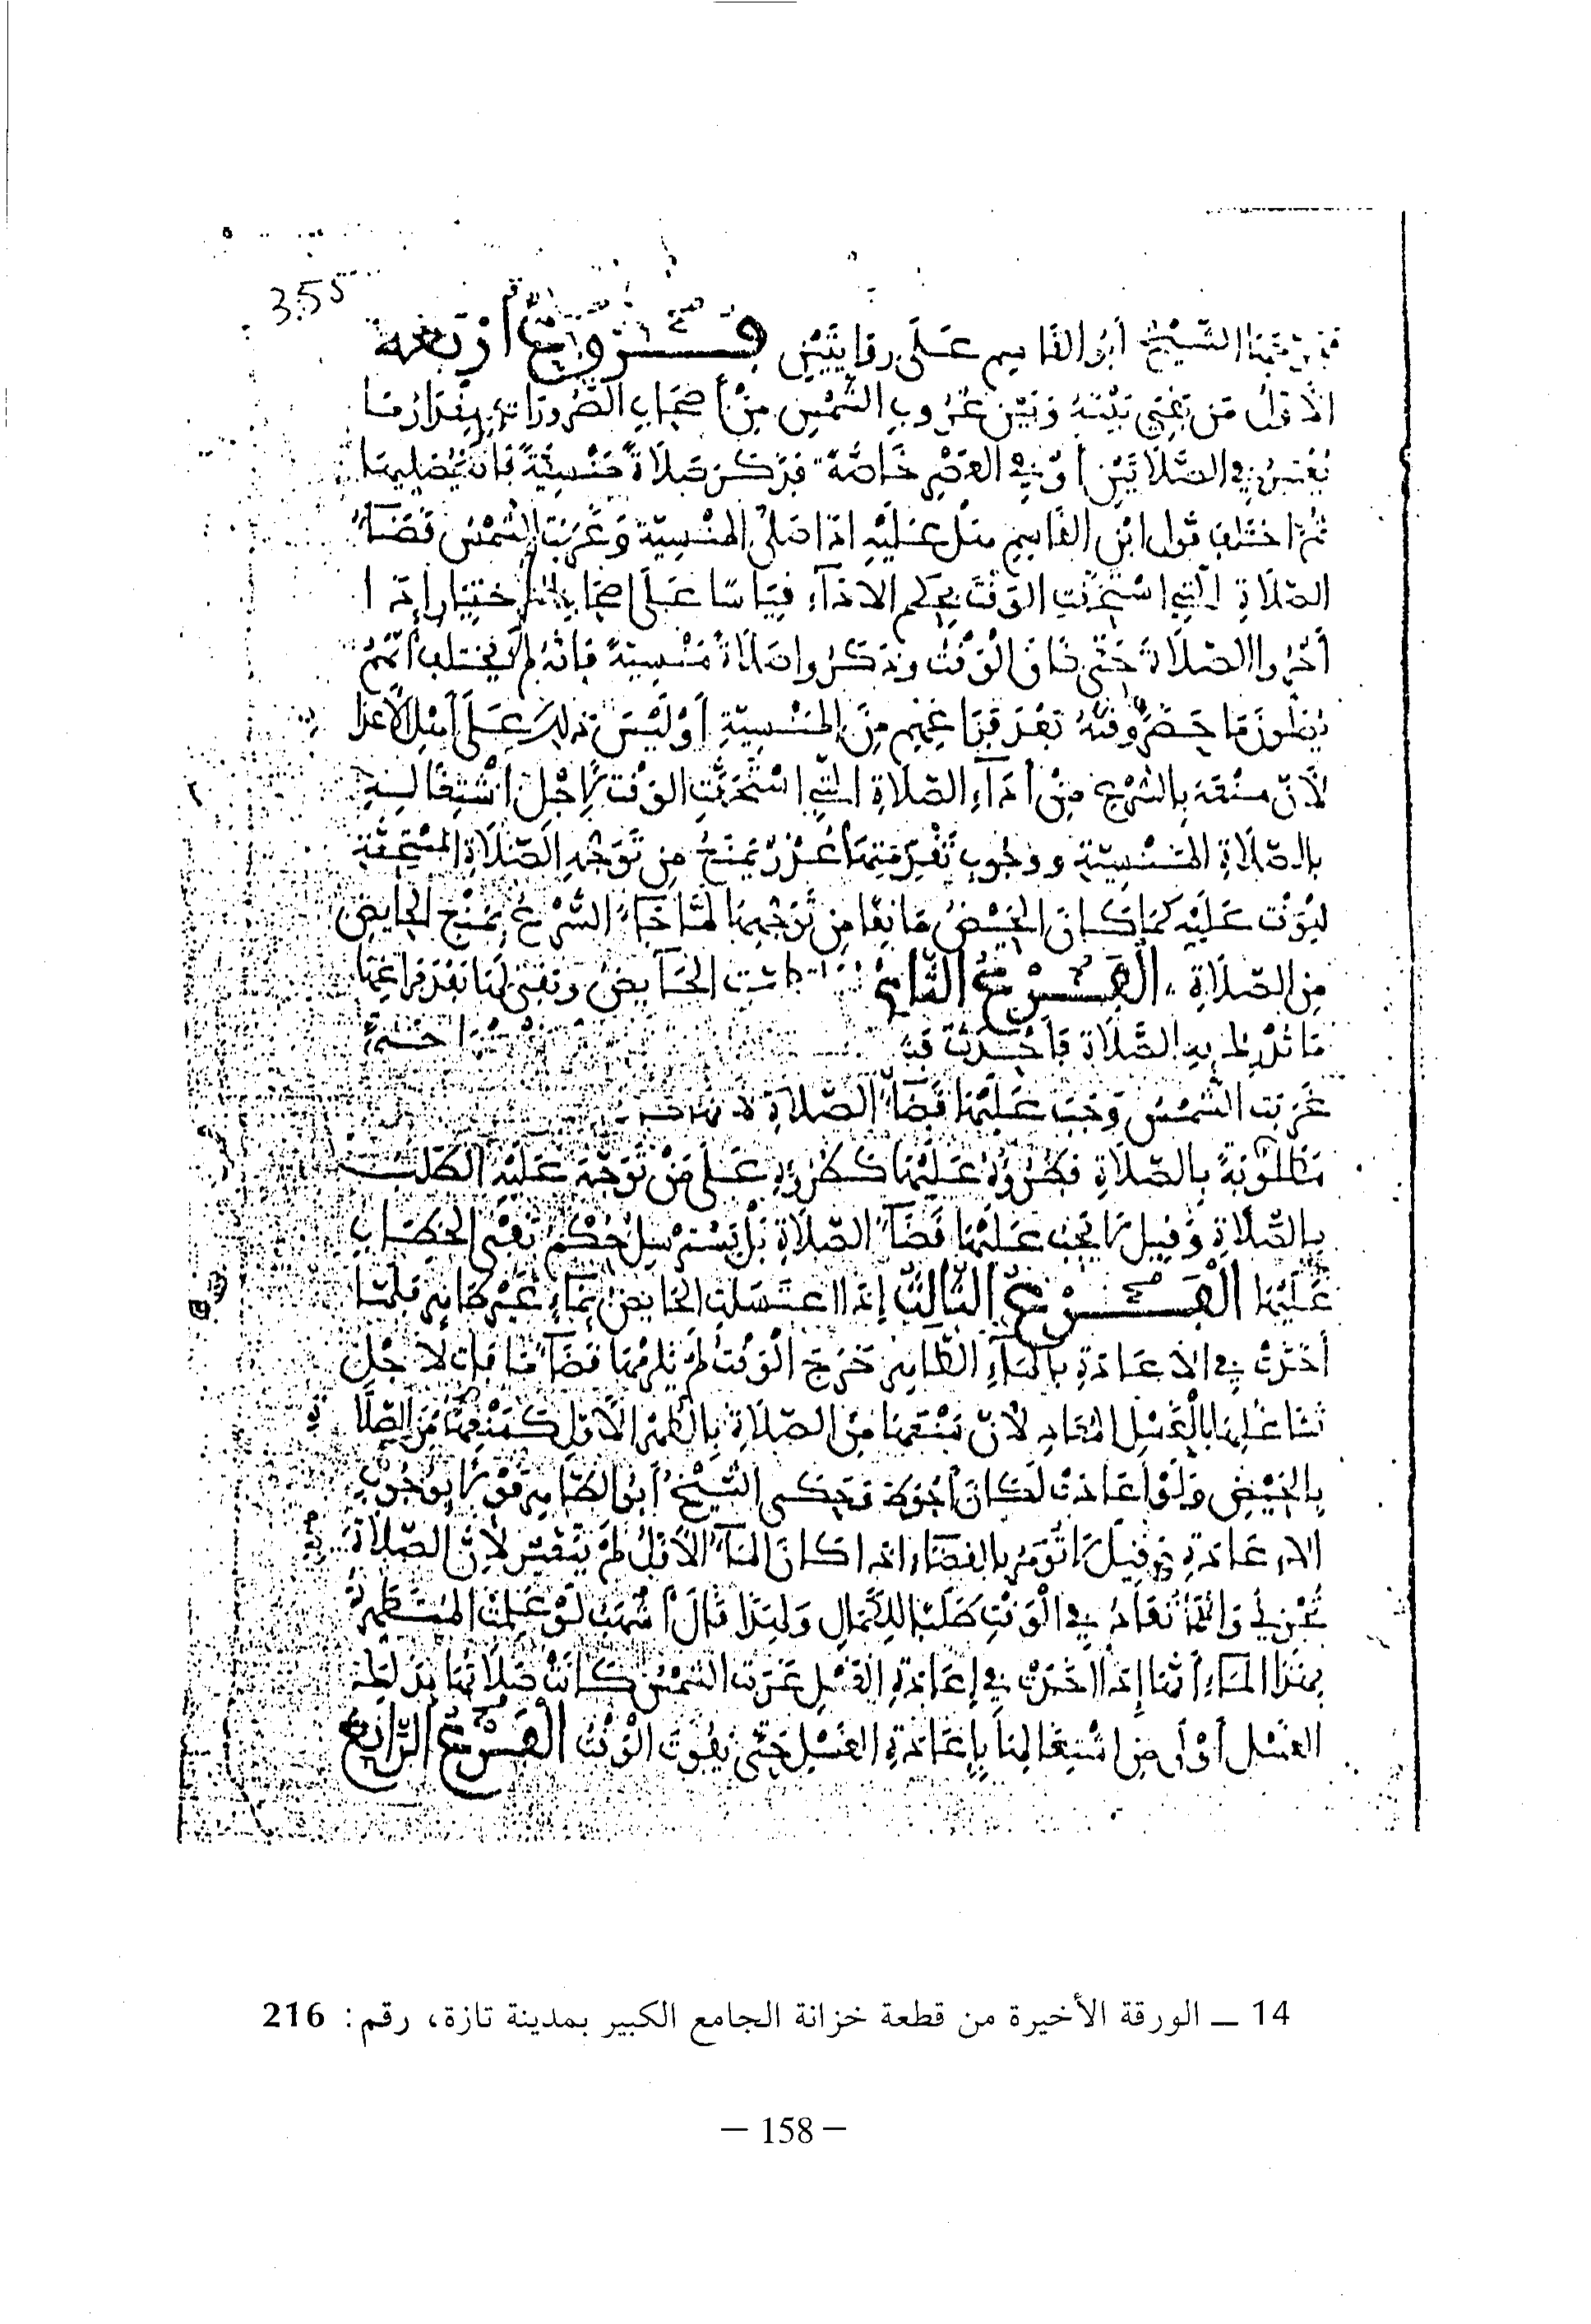 355
الشيخ أبو القاسم على روايتين فروع أربعة
الأول من بقي بينه وبين غروب الشمس من أصحاب الضرورات بمقدار ما
يعتبر في الصلاتين أو في العصر خاصة فذكر صلاة منسية فإنه يصليها
ثم اختلف قول ابن القاسم هل عليه إذا صلى المنسية وغربت الشمس قضاء
الصلاة التي استحقت الوقت بحكم الاذاء قياسا على أصحاب الاختيار إذا
أخروا الصلاة حتى ضاق الوقت وذكروا صلاة منسية فإنه لم يختلف أنهم
يصلون ما حضر وقته بعد فراغهم من المنسية أو ليس ذلك على أهل الاعذا
لأن منعه بالشرع من أداء الصلاة التي استحقت الوقت لأجل اشتغاله
بالصلاة المنسية ووجوب تقدمتها عذر يمنع من توجه الصلاة المستحقة
لوقت عليه كما كان الحيض مانعا من توجهها لما جاء الشرع بمنع الحايض
من الصلاة الفرع الثاني الحايض وبقي لها بعد فراغها
ما تدرك به الصلاة فأحدثت
غربت الشمس وجب عليها قضاء الصلاة
مطلوبة بالصلاة فطروه عليها كطروه على من توجه عليه الطلب
بالصلاة وقيل لا يجب عليها قضاء الصلاة بل يسترسل حكم نفي الخطاب
عليها الفرع الثالث إذا اغتسلت الحايض بماء غير طاهر فلما
أخذت في الاعادة بالماء الطاهر خرج الوقت لم يلزمها قضاء ما فات لاجل
تشاغلها بالغسل المعاد لأن منعها من الصلاة بالطهر الأول كمنعها من الصلا
بالحيض ولو أعادت لكان أحوط وحكى الشيخ أبو الطاهر قولا بوجوب
الاعادة وقيل لا تؤمر بالقضاء إذا كان الماء الأول لم يتغير لأن الصلاة
تجزي وإنما تعاد في الوقت طلبا للكمال ولهذا قال أشهب لو علمت المتطهرة
بهذا الماء أنها إذا أخذت في إعادة الغسل غربت الشمس كانت صلاتها بذلك
الغسل أولى من اشتغالها بإعادة الغسل حتى يفوت الوقت الفرع الرابع
14 ــ الورقة الأخيرة من قطعة خزانة الجامع الكبير بمدينة تازة، رقم: 216
– 158 –